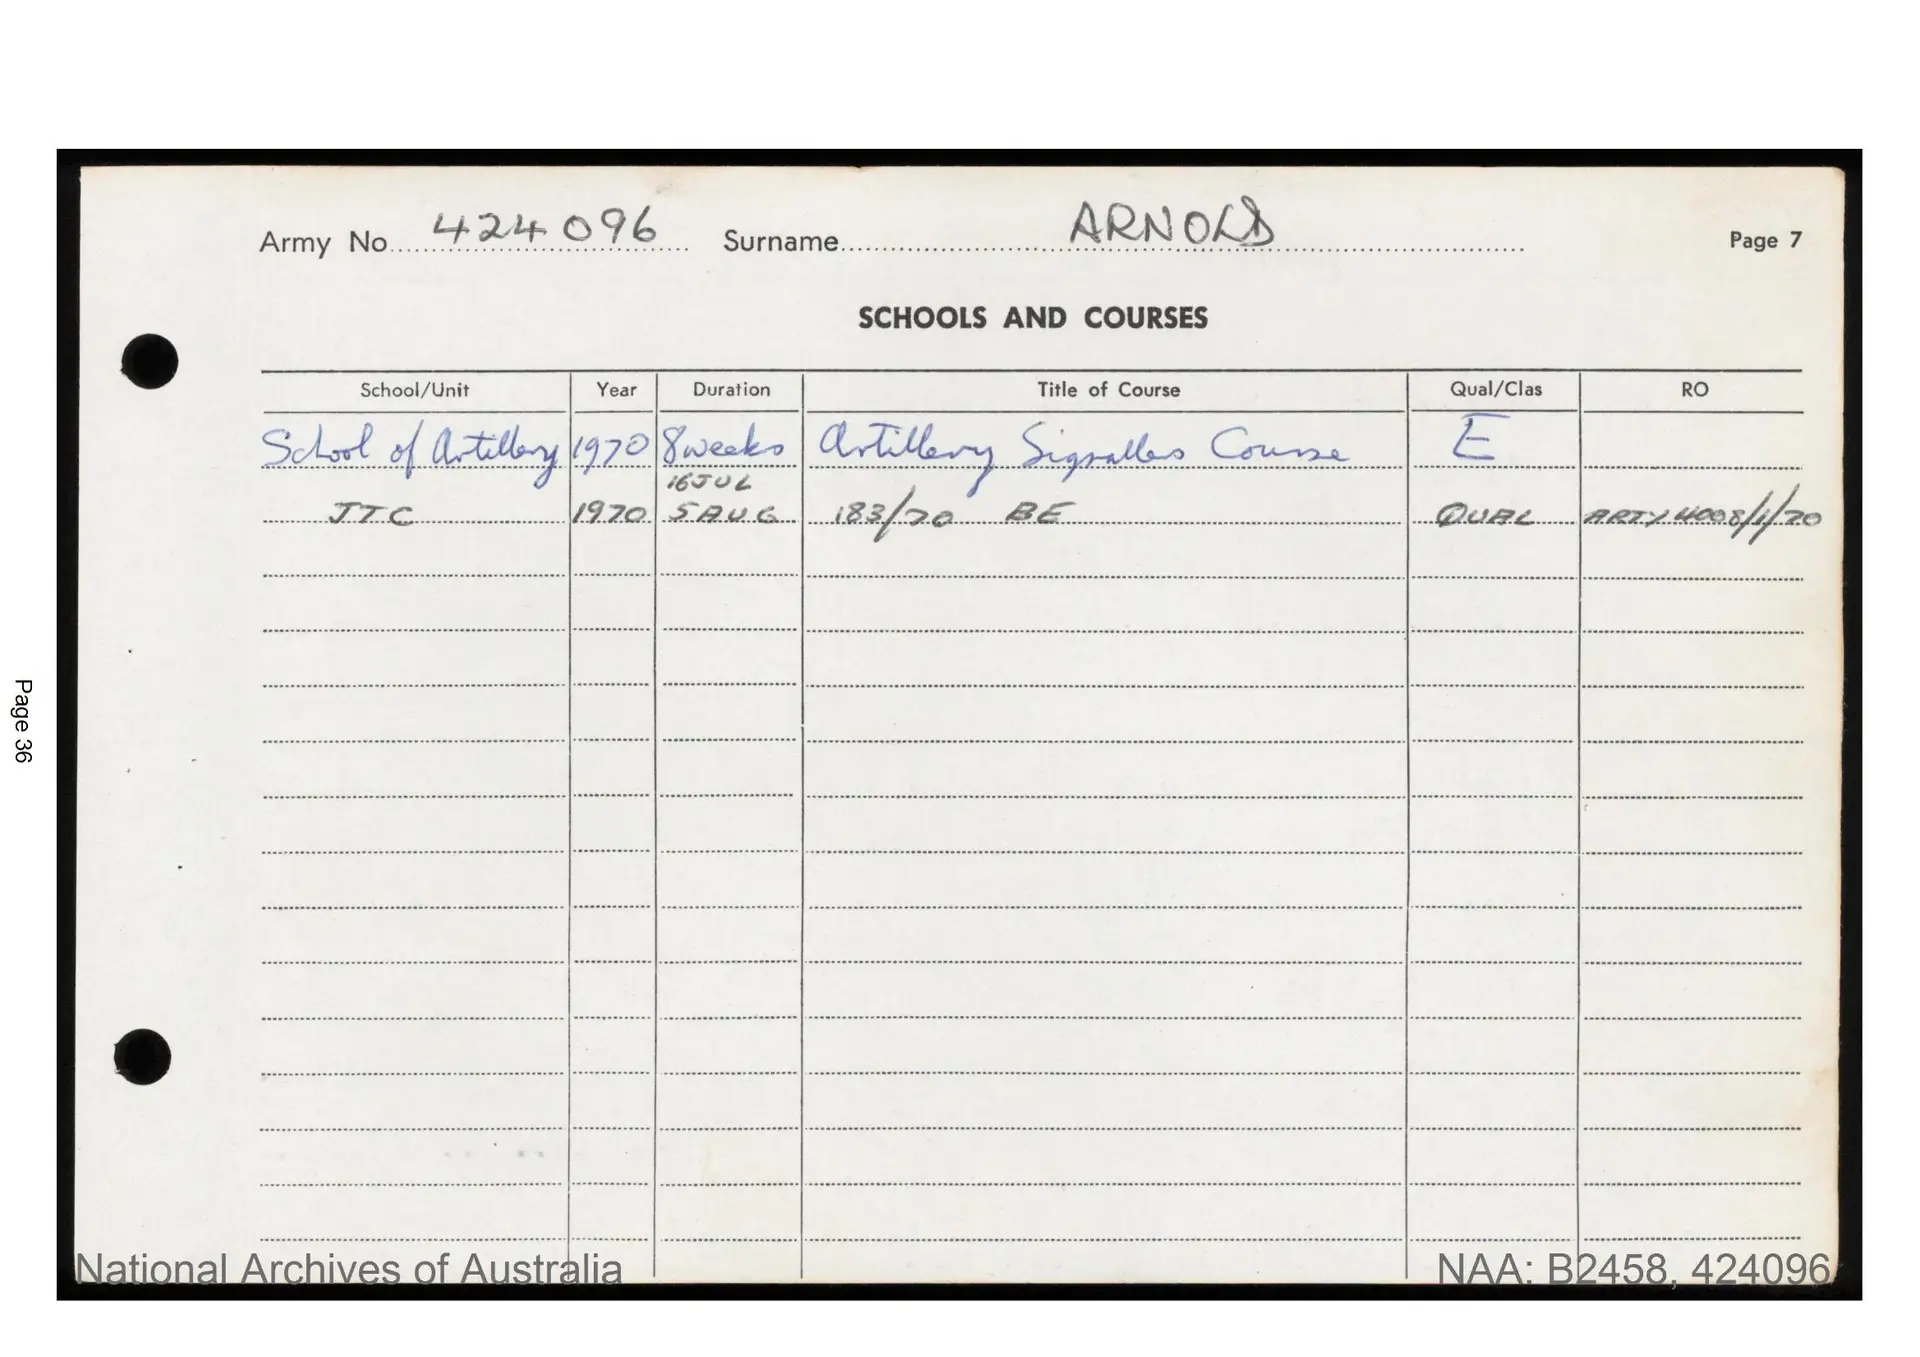 Army No 424096 Surname ARNOLD Page 7
SCHOOLS AND COURSES
School/Unit Year Duration Title of Course Qual/Clas RO
School of Artillery 1970 8 weeks Artillery Signallers Course E
16 JUL
JTC 1970 5 AUG 183/70 BE QUAL ARTY 4008/1/70
Page 36
National Archives of Australia NAA: B2458, 424096